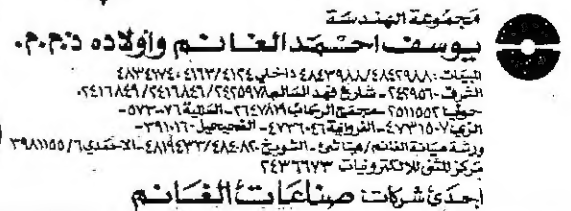 مجموعة الهندسة
يوسف احمد الغانم واولاده ذ.م.م.
المبيعات: ٤٨٤٢٩٨٨/٤٨٤٣٩٨٨ داخلي ٤١٦٣/٤١٢٤، ٤٨٣٤٧٤
الشرق ٢٤٢٩٥٦٠ - شارع فهد السالم ٢٤٢٥٩٧٨/٢٤١٦٨٤٦/٢٤١٦٨٤٩،
حولي ٢٥١١٥٥٢ - مجمع الرحاب ٢٦٤٧٨١٩
الري ٤٧٣١٥٠٧ - الفروانية ٤٧٣٦٠٤٦ - الفحيحيل ٣٩١٠١٦٠
ورشة صيانة الغانم / الشويخ ٤٨١٩٤٣٣ - الاحمدي ٣٩٨١١٥٥/٦
٢٤٣٦٦٧٣ مركز للالكترونيات
إحدى شركات صناعات الغانم